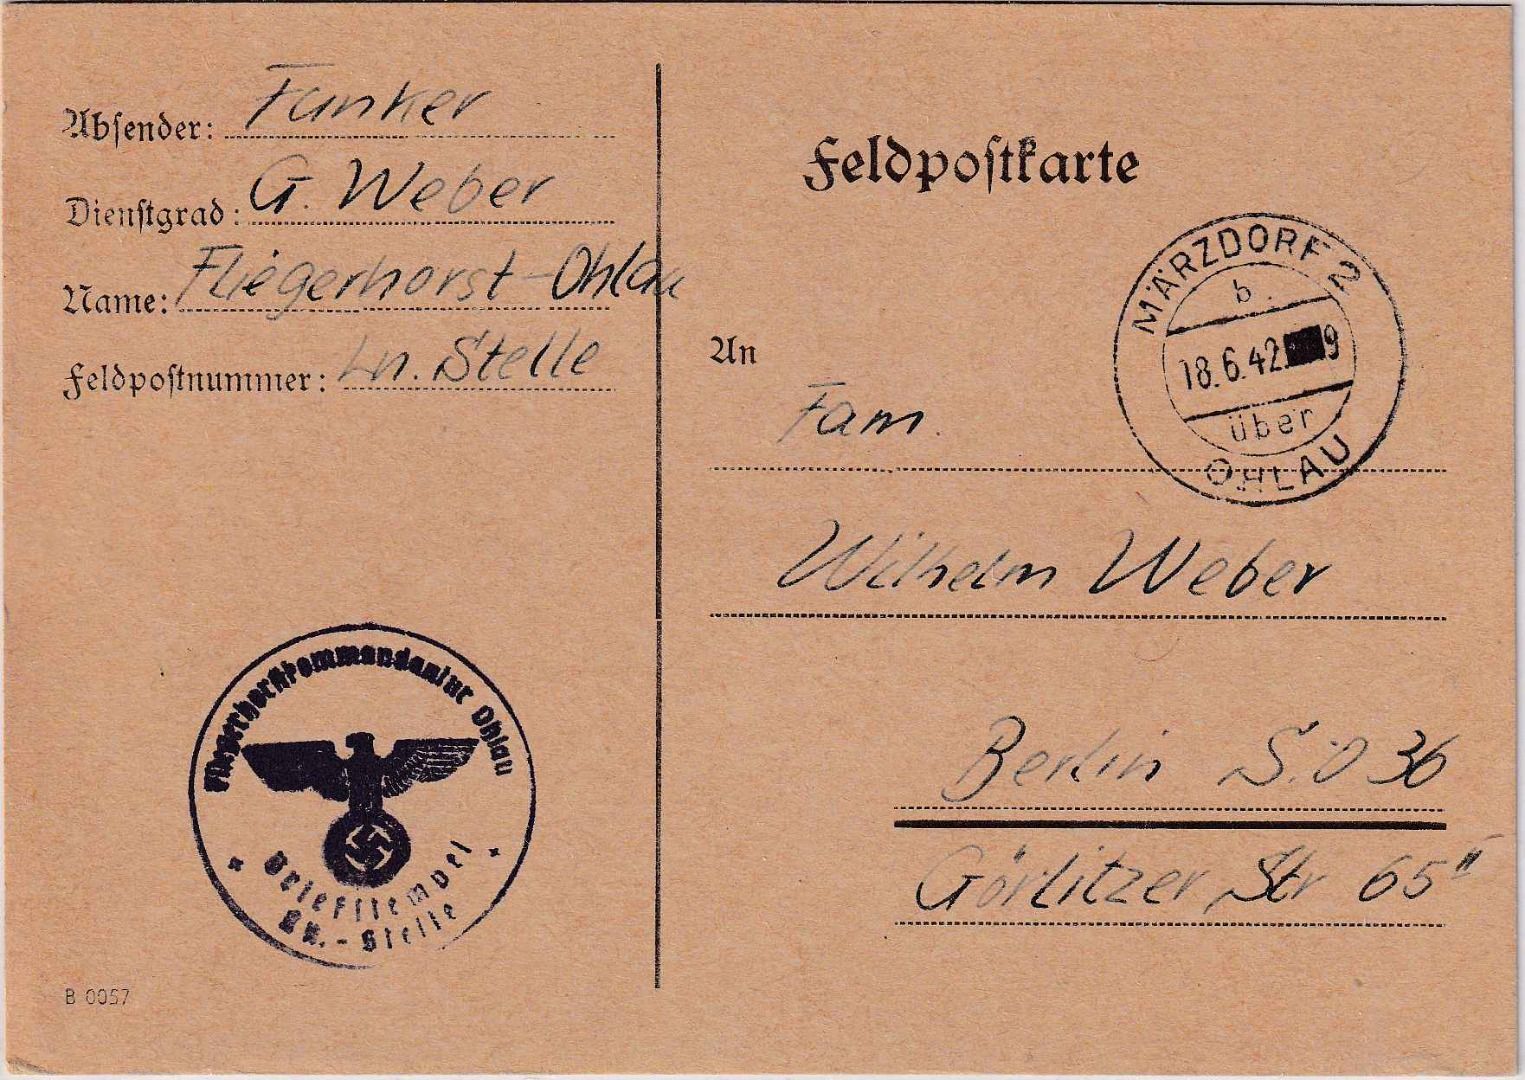 Absender: Funker
Dienstgrad: G. Weber
Name: Fliegerhorst-Ohlau
Feldpostnummer: Ln. Stelle
Fliegerhorstkommandantur Ohlau
Briefstempel
LN.-Stelle
B 0057
Feldpostkarte
MÄRZDORF 2
b.
18.6.42 9
über
OHLAU
An
Fam.
Wilhelm Weber
Berlin S.O 36
Görlitzer Str 65 II